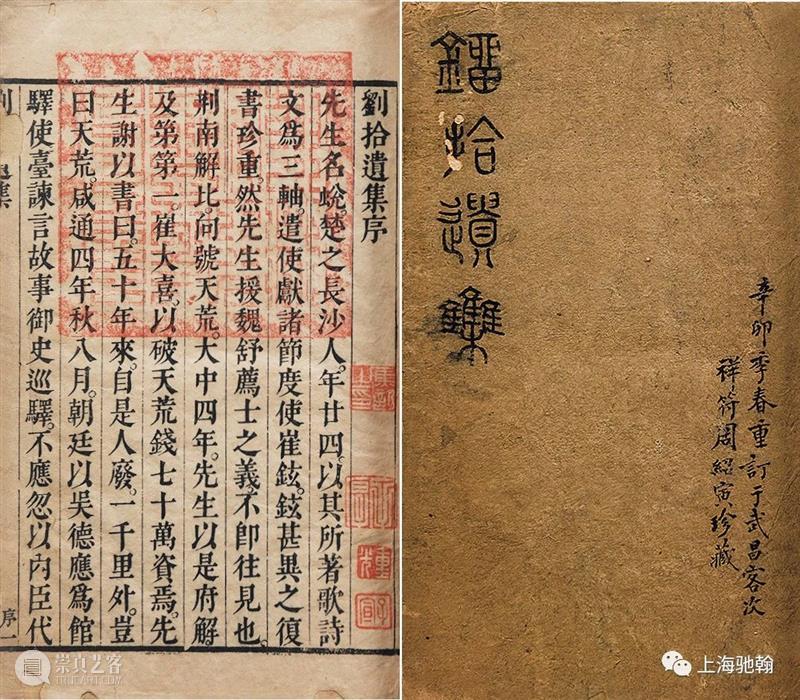 劉拾遺集序
先生名蛻。楚之長沙人。年廿四。以其所著歌詩
文為三軸。遣使獻諸節度使崔鉉。鉉甚異之。復
書珍重。然先生援魏舒薦士之義。不卽往見也。
荆南解比。向號天荒。大中四年。先生以是府解
及第第一。崔大喜。以破天荒錢七十萬資焉。先
生謝以書曰。五十年來。自是人廢。一千里外。豈
曰天荒。咸通四年秋八月。朝廷以吳德應為館
驛使。臺諫言故事御史巡驛。不應忽以內臣代
序一
鐂拾遺集
辛卯季春重訂于武昌客次
祥符周紹寅珍藏
崇真艺客
上海驰翰